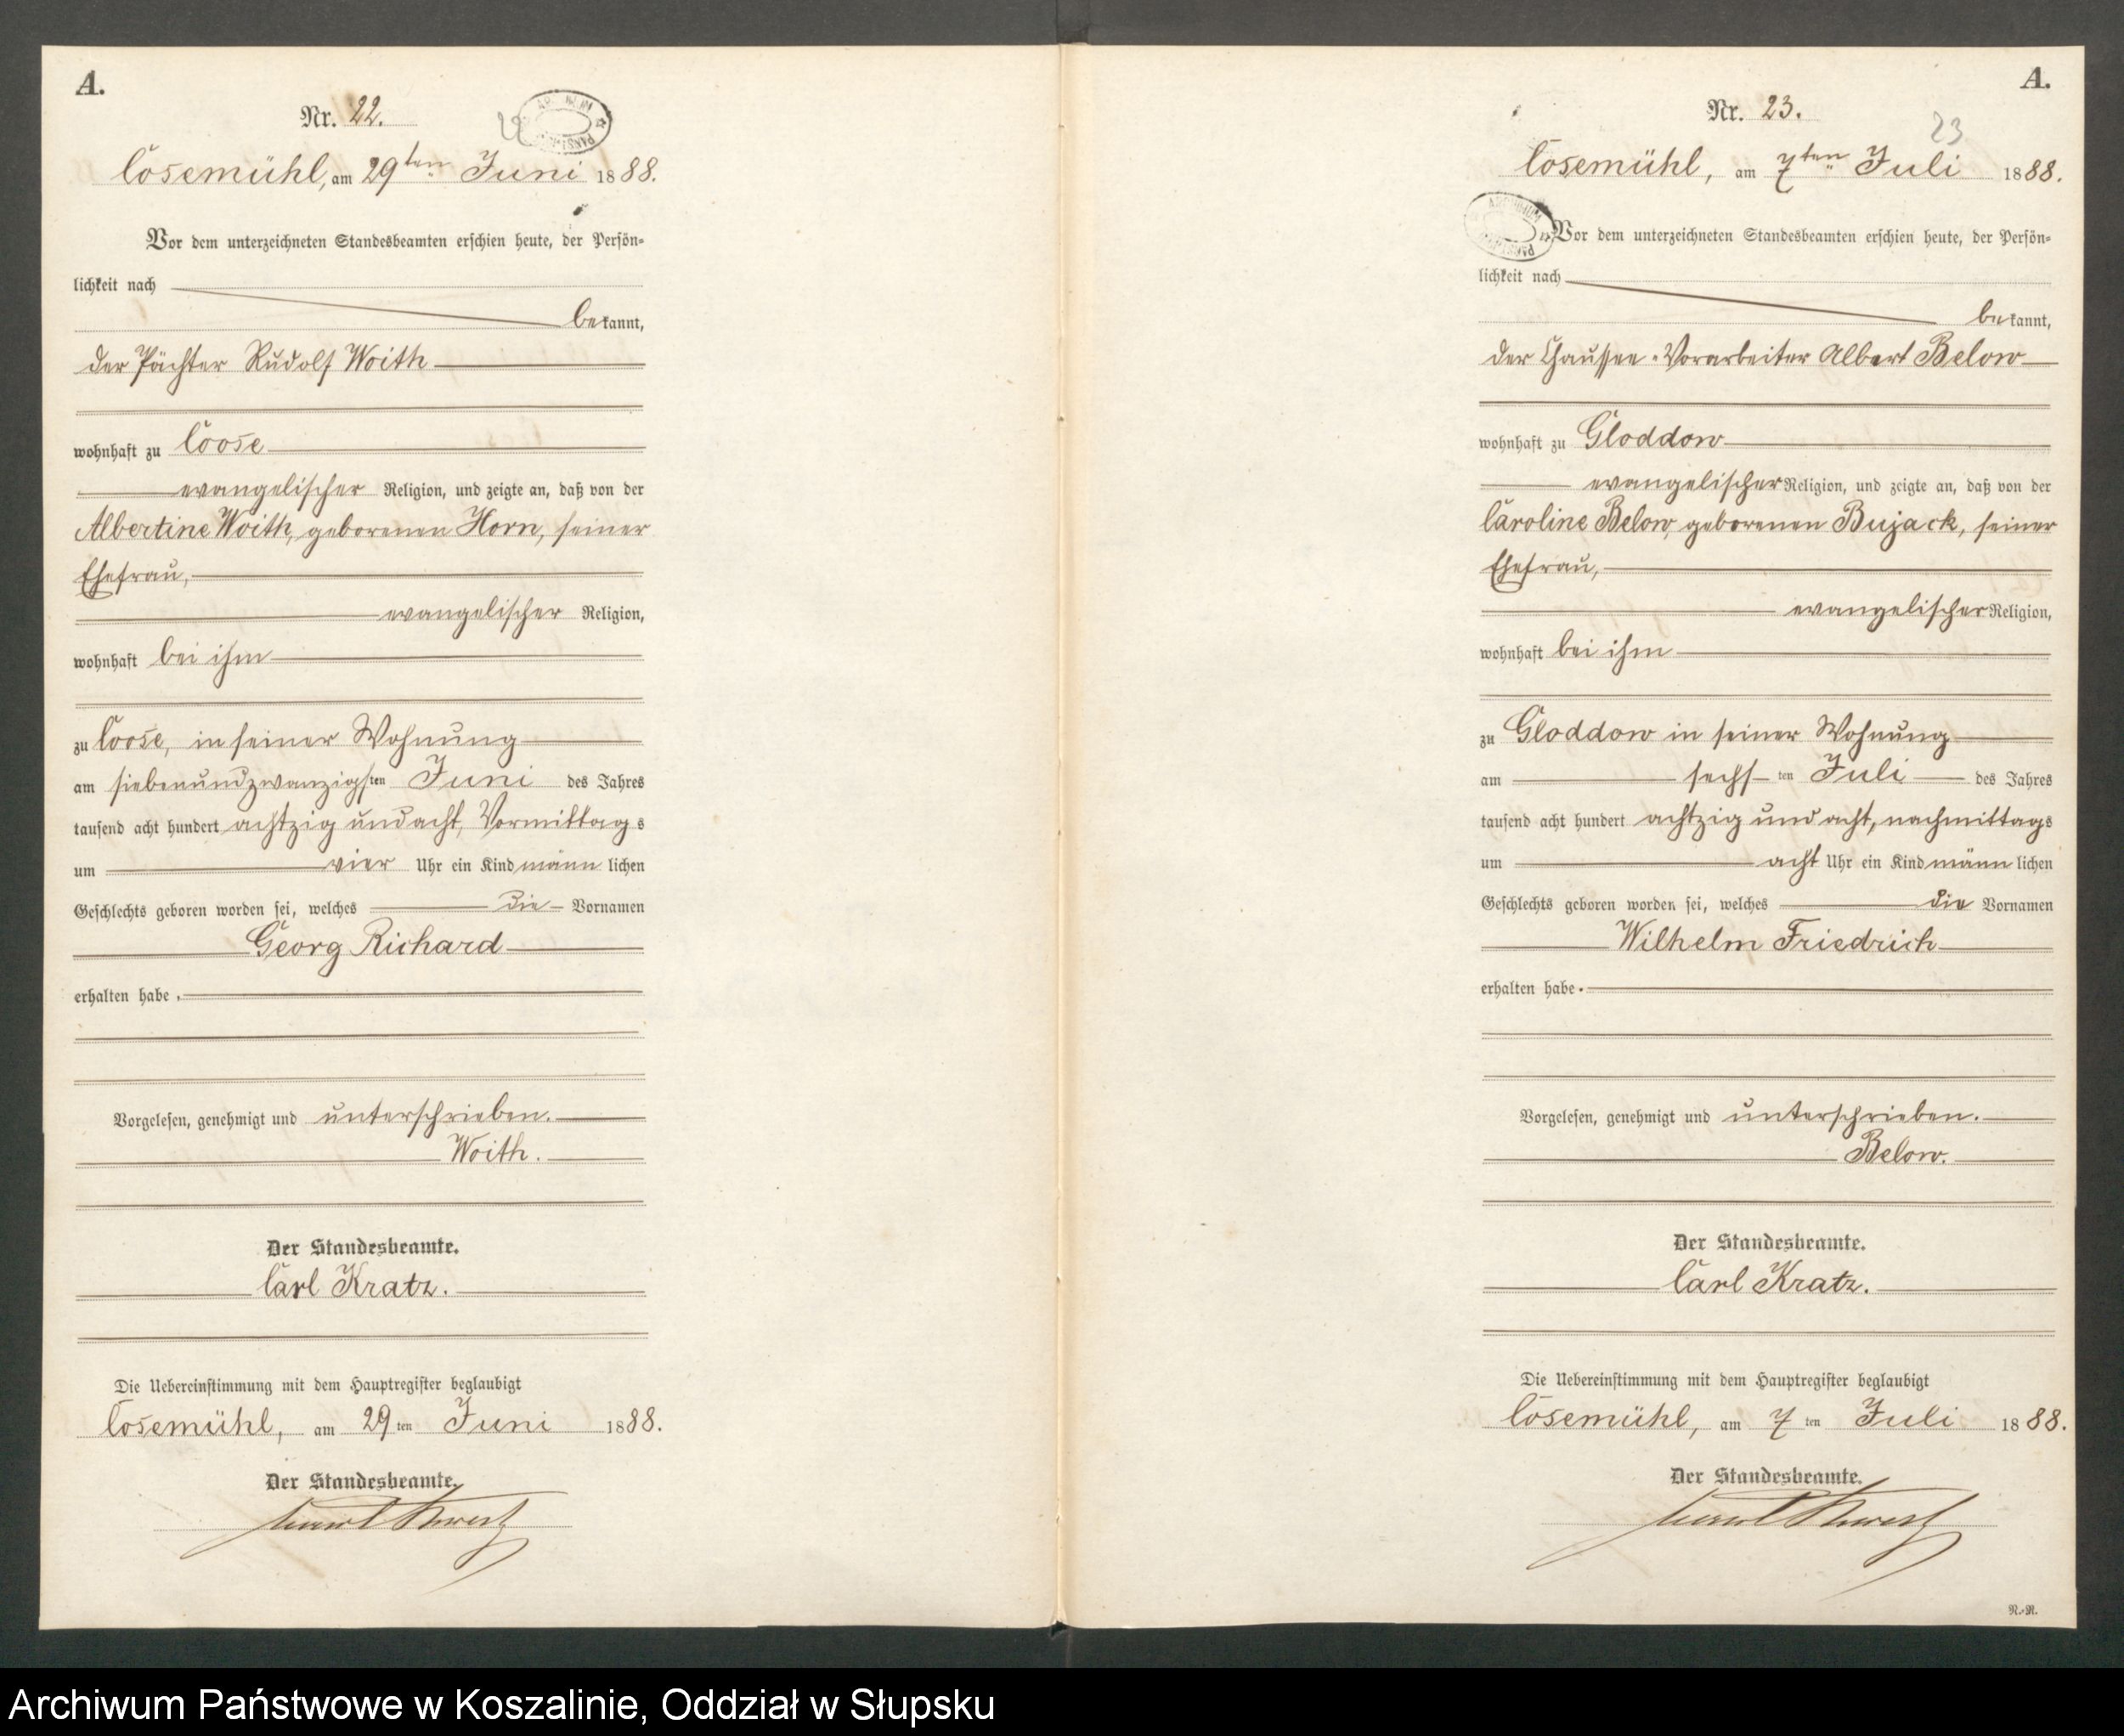 A.
Nr. 22.
Cosemühl, am 29ten Juni 1888.
Vor dem unterzeichneten Standesbeamten erschien heute, der Persön-
lichkeit nach
bekannt,
der Pächter Rudolf Woith
wohnhaft zu Coose
evangelischer Religion, und zeigte an, daß von der
Albertine Woith, geborenen Horn, seiner
Ehefrau,
evangelischer Religion,
wohnhaft bei ihm
zu Coose, in seiner Wohnung
am siebenundzwanzigsten Juni des Jahres
tausend acht hundert achtzig und acht, Vormittags
um vier Uhr ein Kind männlichen
Geschlechts geboren worden sei, welches die Vornamen
Georg Richard
erhalten habe.
Vorgelesen, genehmigt und unterschrieben.
Woith.
Der Standesbeamte.
Carl Kratz.
Die Uebereinstimmung mit dem Hauptregister beglaubigt
Cosemühl, am 29ten Juni 1888.
Der Standesbeamte.
A.
Nr. 23.
23
Cosemühl, am 7ten Juli 1888.
Vor dem unterzeichneten Standesbeamten erschien heute, der Persön-
lichkeit nach
bekannt,
der Chaussee-Vorarbeiter Albert Below
wohnhaft zu Gloddow
evangelischer Religion, und zeigte an, daß von der
Caroline Below, geborenen Bujack, seiner
Ehefrau,
evangelischer Religion,
wohnhaft bei ihm
zu Gloddow in seiner Wohnung
am sechsten Juli des Jahres
tausend acht hundert achtzig und acht, nachmittags
um acht Uhr ein Kind männlichen
Geschlechts geboren worden sei, welches die Vornamen
Wilhelm Friedrich
erhalten habe.
Vorgelesen, genehmigt und unterschrieben.
Below.
Der Standesbeamte.
Carl Kratz.
Die Uebereinstimmung mit dem Hauptregister beglaubigt
Cosemühl, am 7ten Juli 1888.
Der Standesbeamte.
N.-N.
Archiwum Państwowe w Koszalinie, Oddział w Słupsku